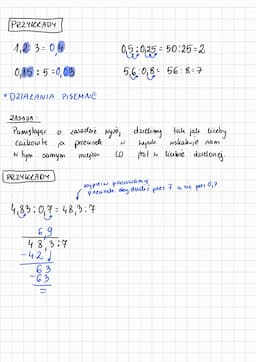 PRZYKŁADY
1,2:3=0,4
0,5:0,25=50:25=2
0,15:5=0,03
5,6:0,8=56:8=7
*DZIAŁANIA PISEMNE
ZASADA:
Pamiętając o zasadzie wyżej, dzielimy tak jak liczby
całkowite a przecinek w wyniku wskakuje nam
w tym samym miejscu co jest w liczbie dzielonej.
PRZYKŁADY
najpierw przesuwamy
przecinek aby dzielić przez 7 a nie przez 0,7
4,83:0,7=48,3:7
6,9
48,3:7
-42
63
-63
=